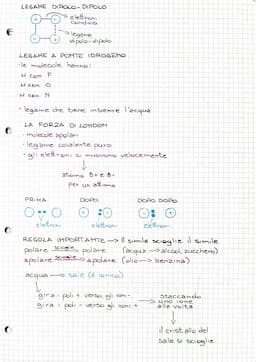 LEGAME DIPOLO-DIPOLO
elettroni
condivisi
legame
dipolo-dipolo
LEGAME A PONTE IDROGENO
· le molecole hanno:
H con F
H con O
H con N
· legame che tiene insieme l'acqua
LA FORZA DI LONDON
· molecole apolari
· legame covalente puro
· gli elettroni si muovono velocemente
atomo δ+ e δ-
per un attimo
PRIMA DOPO DOPO DOPO
elettroni elettroni elettroni
REGOLA IMPORTANTE → il simile scioglie il simile
polare scioglie polare (acqua → alcool, zucchero)
apolare scioglie apolare (olio → benzina)
acqua → sale (è ionico)
gira i poli + verso gli ioni -
gira i poli - verso gli ioni +
staccando
uno ione
alla volta
il cristallo del
sale si scioglie